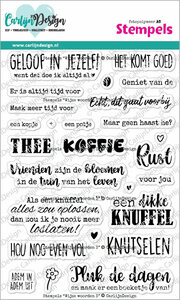 CarlijnDesign
Fotopolymeer A5
Stempels
www.carlijndesign.nl
GELOOF IN JEZELF!
want dat doe ik altijd al
HET KOMT GOED
Er is altijd tijd voor
Geniet van de
Maak meer tijd voor
Echt, dit gaat voorbij
een kopje
een potje
Maar geen haast he?
THEE
KOFFIE
Rust
voor jou
Vrienden zijn de bloemen
in de tuin van het leven
Als een knuffel
alles zou oplossen,
dan zou ik je nooit meer
loslaten!
een dikke
KNUFFEL
HOU NOG EVEN VOL
KNUTSELEN
ADEM IN
ADEM UIT
Pluk de dagen
en maak er een boeketje van!